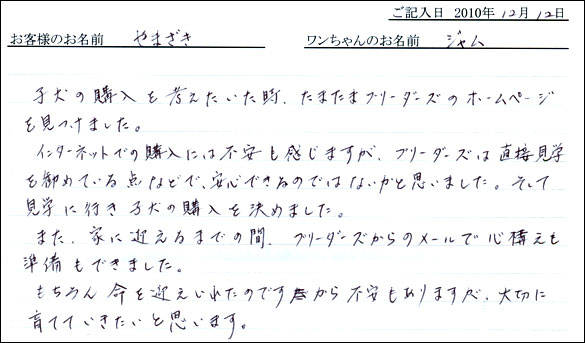 ご記入日 2010年 12月 12日
お客様のお名前 やまざき ワンちゃんのお名前 ジャム
子犬の購入を考えたいた時、たまたまブリーダーズのホームページ
を見つけました。
インターネットでの購入には不安も感じますが、ブリーダーズは直接見学
を勧めている点などで、安心できるのではないかと思いました。そして
見学に行き子犬の購入を決めました。
また、家に迎えるまでの間、ブリーダーズからのメールで心構えも
準備もできました。
もちろん命を迎えいれたのですから不安もありますが、大切に
育てていきたいと思います。